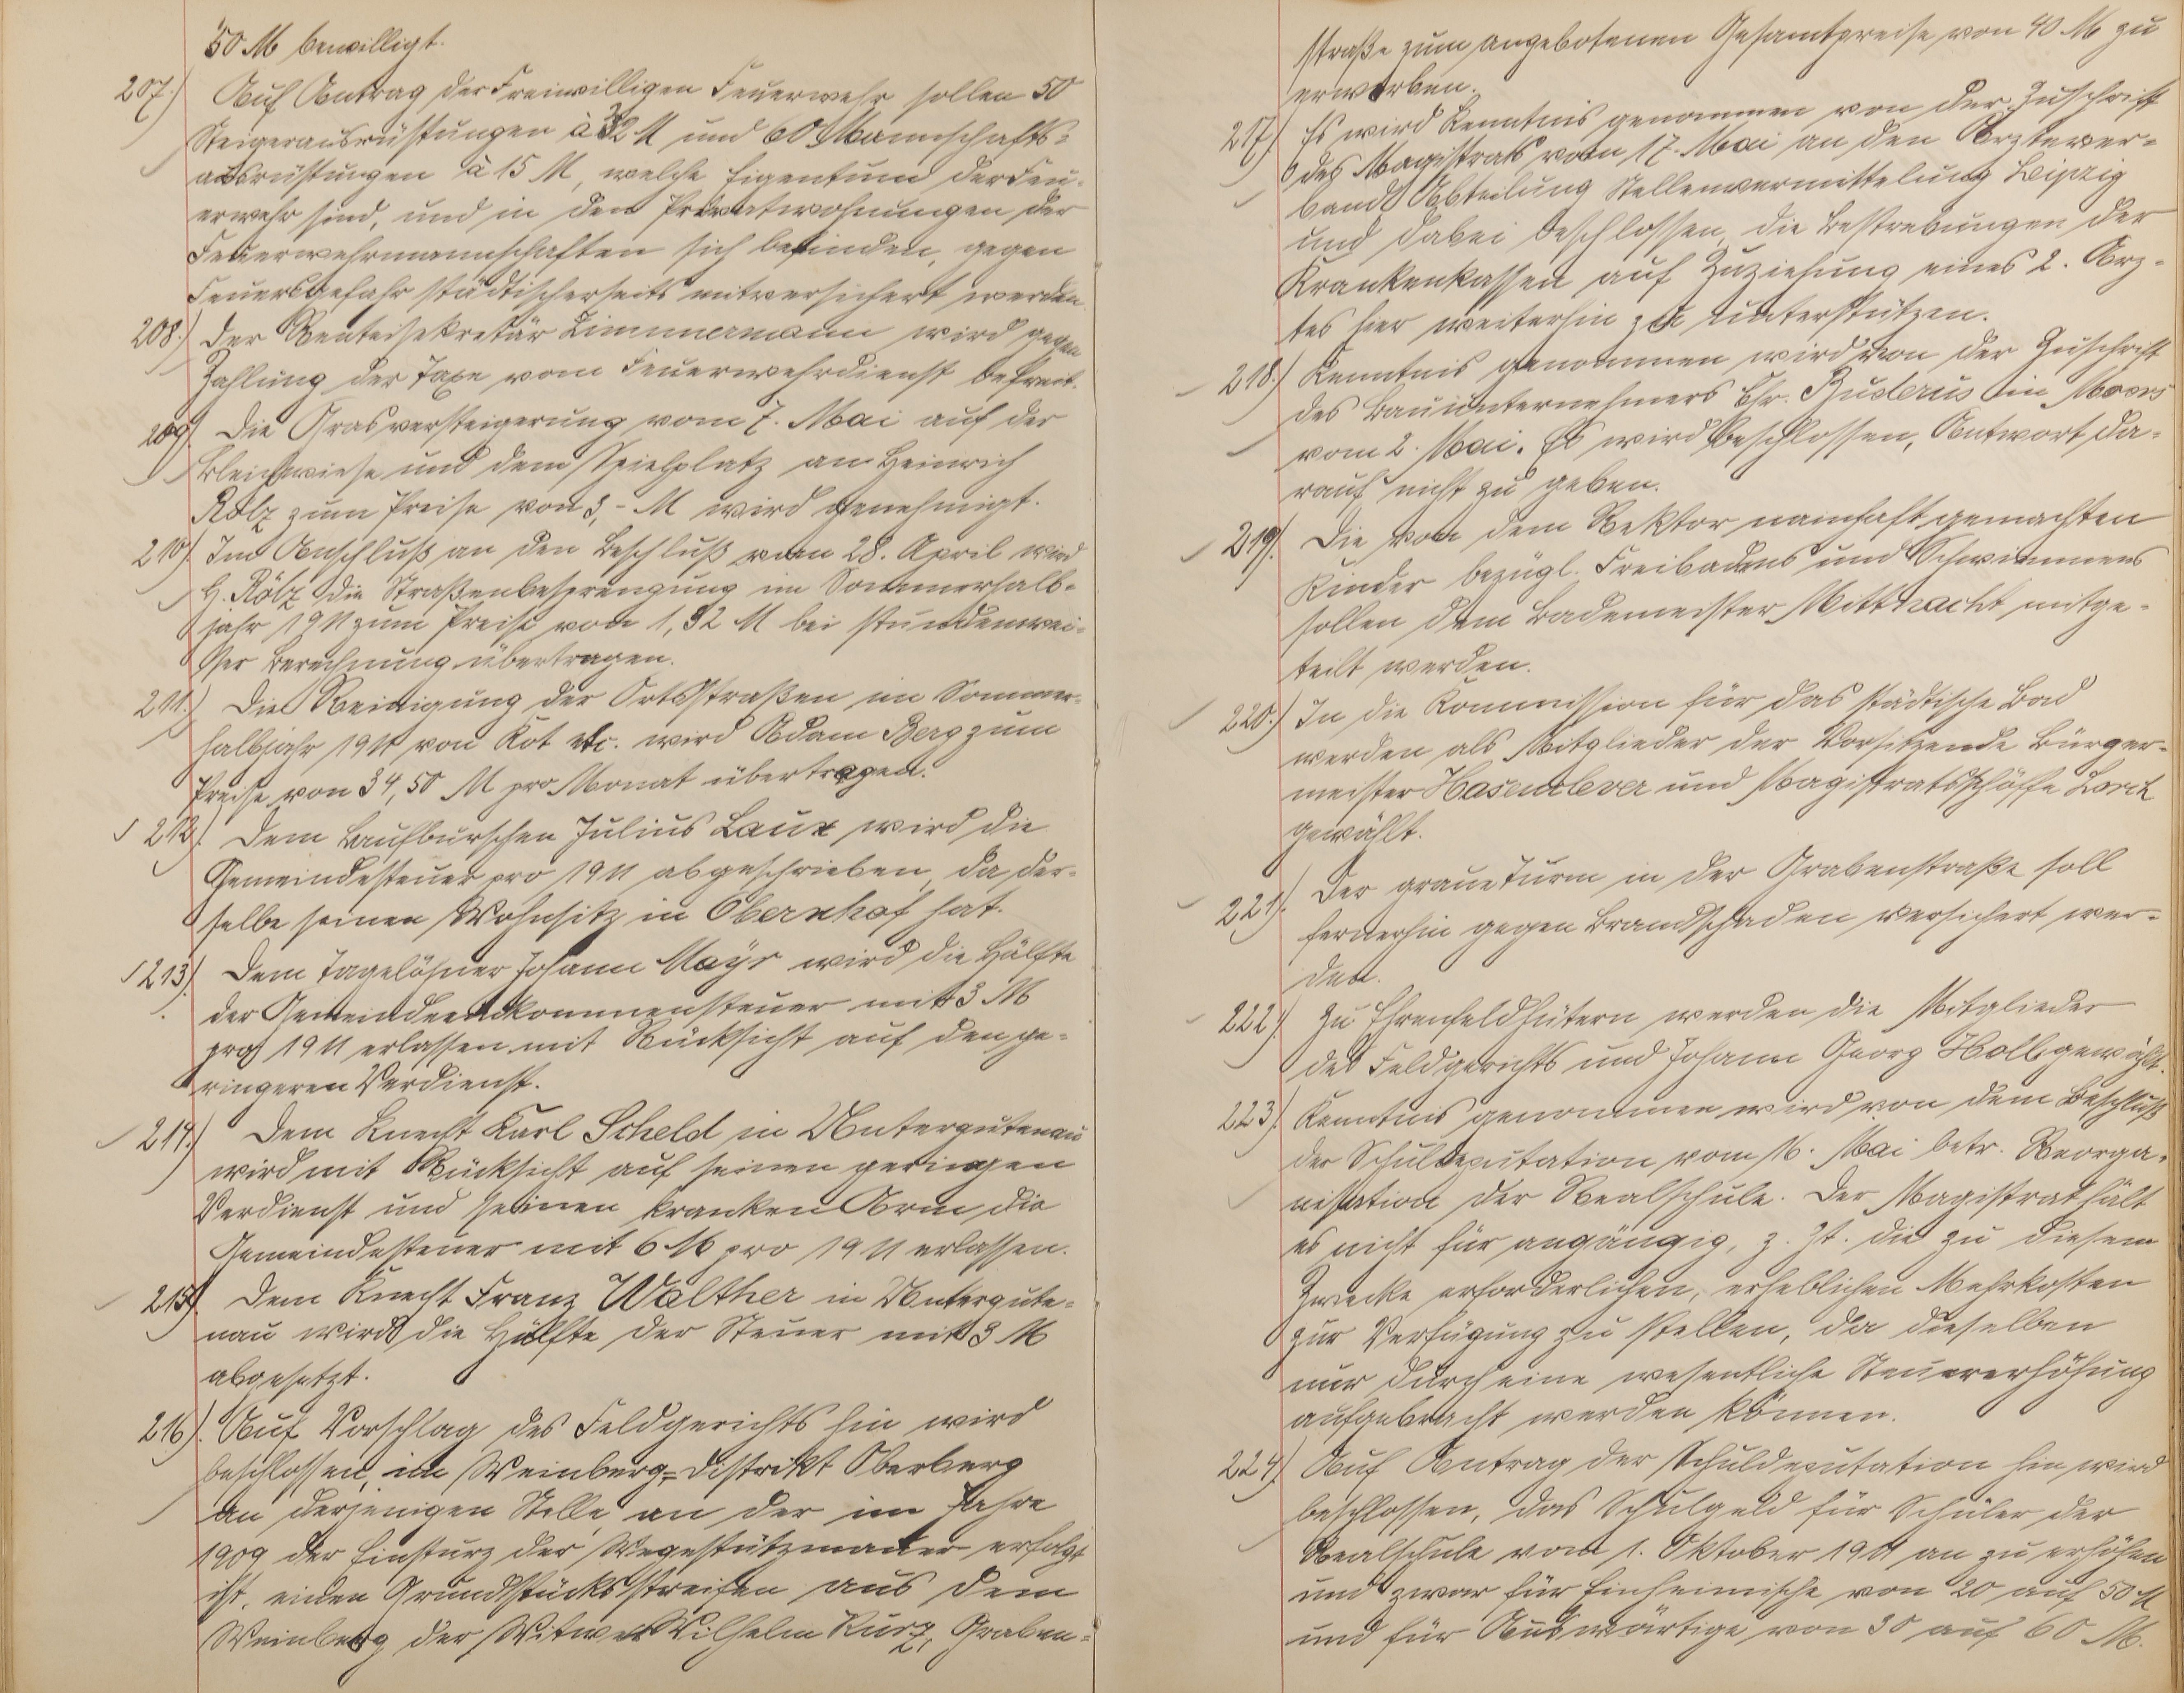 50 M bewilligt.
207.) Auf Antrag der Freiwilligen Feuerwehr sollen 50
Steigerausrüstungen à 32 M und 60 Mannschafts-
ausrüstungen à 15 M, welche Eigentum der Feu-
erwehr sind, und in den Privatwohnungen der
Feuerwehrmannschaften sich befinden, gegen
Feuersgefahr städtischerseits mitversichert werden.
208.) Der Renteisekretär Zimmermann wird gegen
Zahlung der Taxe vom Feuerwehrdienst befreit.
209.) Die Grasversteigerung vom 7. Mai auf der
Bleichwiese und dem Spielplatz an Heinrich
Rölz zum Preise von 3,- M wird genehmigt.
210.) Im Anschluß an den Beschluß vom 28. April wird
H. Rölz die Straßenbesprengung im Sommerhalb-
jahr 1911 zum Preise von 1,32 M bei stundenwei-
ser Berechnung übertragen.
211.) Die Reinigung der Ortsstraßen im Sommer-
halbjahr 1911 von Kot etc. wird Adam Berg zum
Preise von 34,50 M pro Monat übertragen.
212.) Dem Laufburschen Julius Laux wird die
Gemeindesteuer pro 1911 abgeschrieben, da der-
selbe seinen Wohnsitz in Obernhof hat.
213.) Dem Tagelöhner Johann Mayr wird die Hälfte
der Gemeindeeinkommensteuer mit 3 M
pro 1911 erlassen mit Rücksicht auf den ge-
ringeren Verdienst.
214.) Dem Knecht Karl Scheld in Untergutenau
wird mit Rücksicht auf seinen geringen
Verdienst und seinen kranken Arm die
Gemeindesteuer mit 6 M pro 1911 erlassen.
215.) Dem Knecht Franz Walther in Untergute-
nau wird die Hälfte der Steuer mit 3 M
abgesetzt.
216.) Auf Vorschlag des Feldgerichts hin wird
beschlossen, im Weinberg-Distrikt Oberberg
an derjenigen Stelle, an der im Jahre
1909 der Einsturz der Wegestützmauer erfolgt
ist, einen Grundstücksstreifen aus dem
Weinberg der Witwe Wilhelm Kurz, Graben-
straße zum angebotenen Gesamtpreise von 40 M zu
erwerben.
217.) Es wird Kenntnis genommen von der Zuschrift
des Magistrats vom 17. Mai an den Ärztever-
band Abteilung Stellenvermittelung Leipzig
und dabei beschlossen, die Bestrebungen der
Krankenkassen auf Zuziehung eines 2. Arz-
tes hier weiterhin zu unterstützen.
218.) Kenntnis genommen wird von der Zuschrift
des Bauunternehmers Chr. Buderus in
vom 2. Mai. Es wird beschlossen, Antwort da-
rauf nicht zu geben.
219.) Die von dem Rektor namhaft gemachten
Kinder bezügl. Freibadens und Schwimmens
sollen dem Bademeister Mittnacht mitge-
teilt werden.
220.) In die Kommission für das städtische Bad
werden als Mitglieder der Vorsitzende Bürger-
meister Hasenclever und Magistratsschöffe Lorch
gewählt.
221.) Der graue Turm in der Grabenstraße soll
fernerhin gegen Brandschaden versichert wer-
den.
222.) Zu Ehrenfeldhütern werden die Mitglieder
des Feldgerichts und Johann Georg Holl gewählt.
223.) Kenntnis genommen wird von dem Beschluß
der Schuldeputation vom 16. Mai betr. Reorga-
nisation der Realschule. Der Magistrat hält
es nicht für angängig, z. Zt. die zu diesem
Zwecke erforderlichen, erheblichen Mehrkosten
zur Verfügung zu stellen, da dieselben
nur durch eine wesentliche Steuererhöhung
aufgebracht werden können.
224.) Auf Antrag der Schuldeputation hin wird
beschlossen, das Schulgeld für Schüler der
Realschule vom 1. Oktober 1911 an zu erhöhen
und zwar für Einheimische von 20 auf 50 M
und für Auswärtige von 30 auf 60 M.